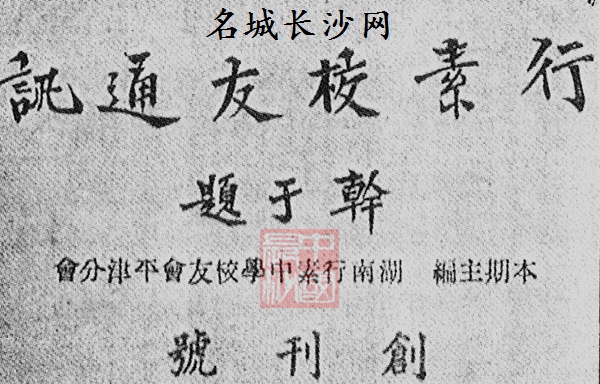 名城长沙网
行素校友通訊
幹于題
本期主編 湖南行素中學校友會平津分會
創刊號